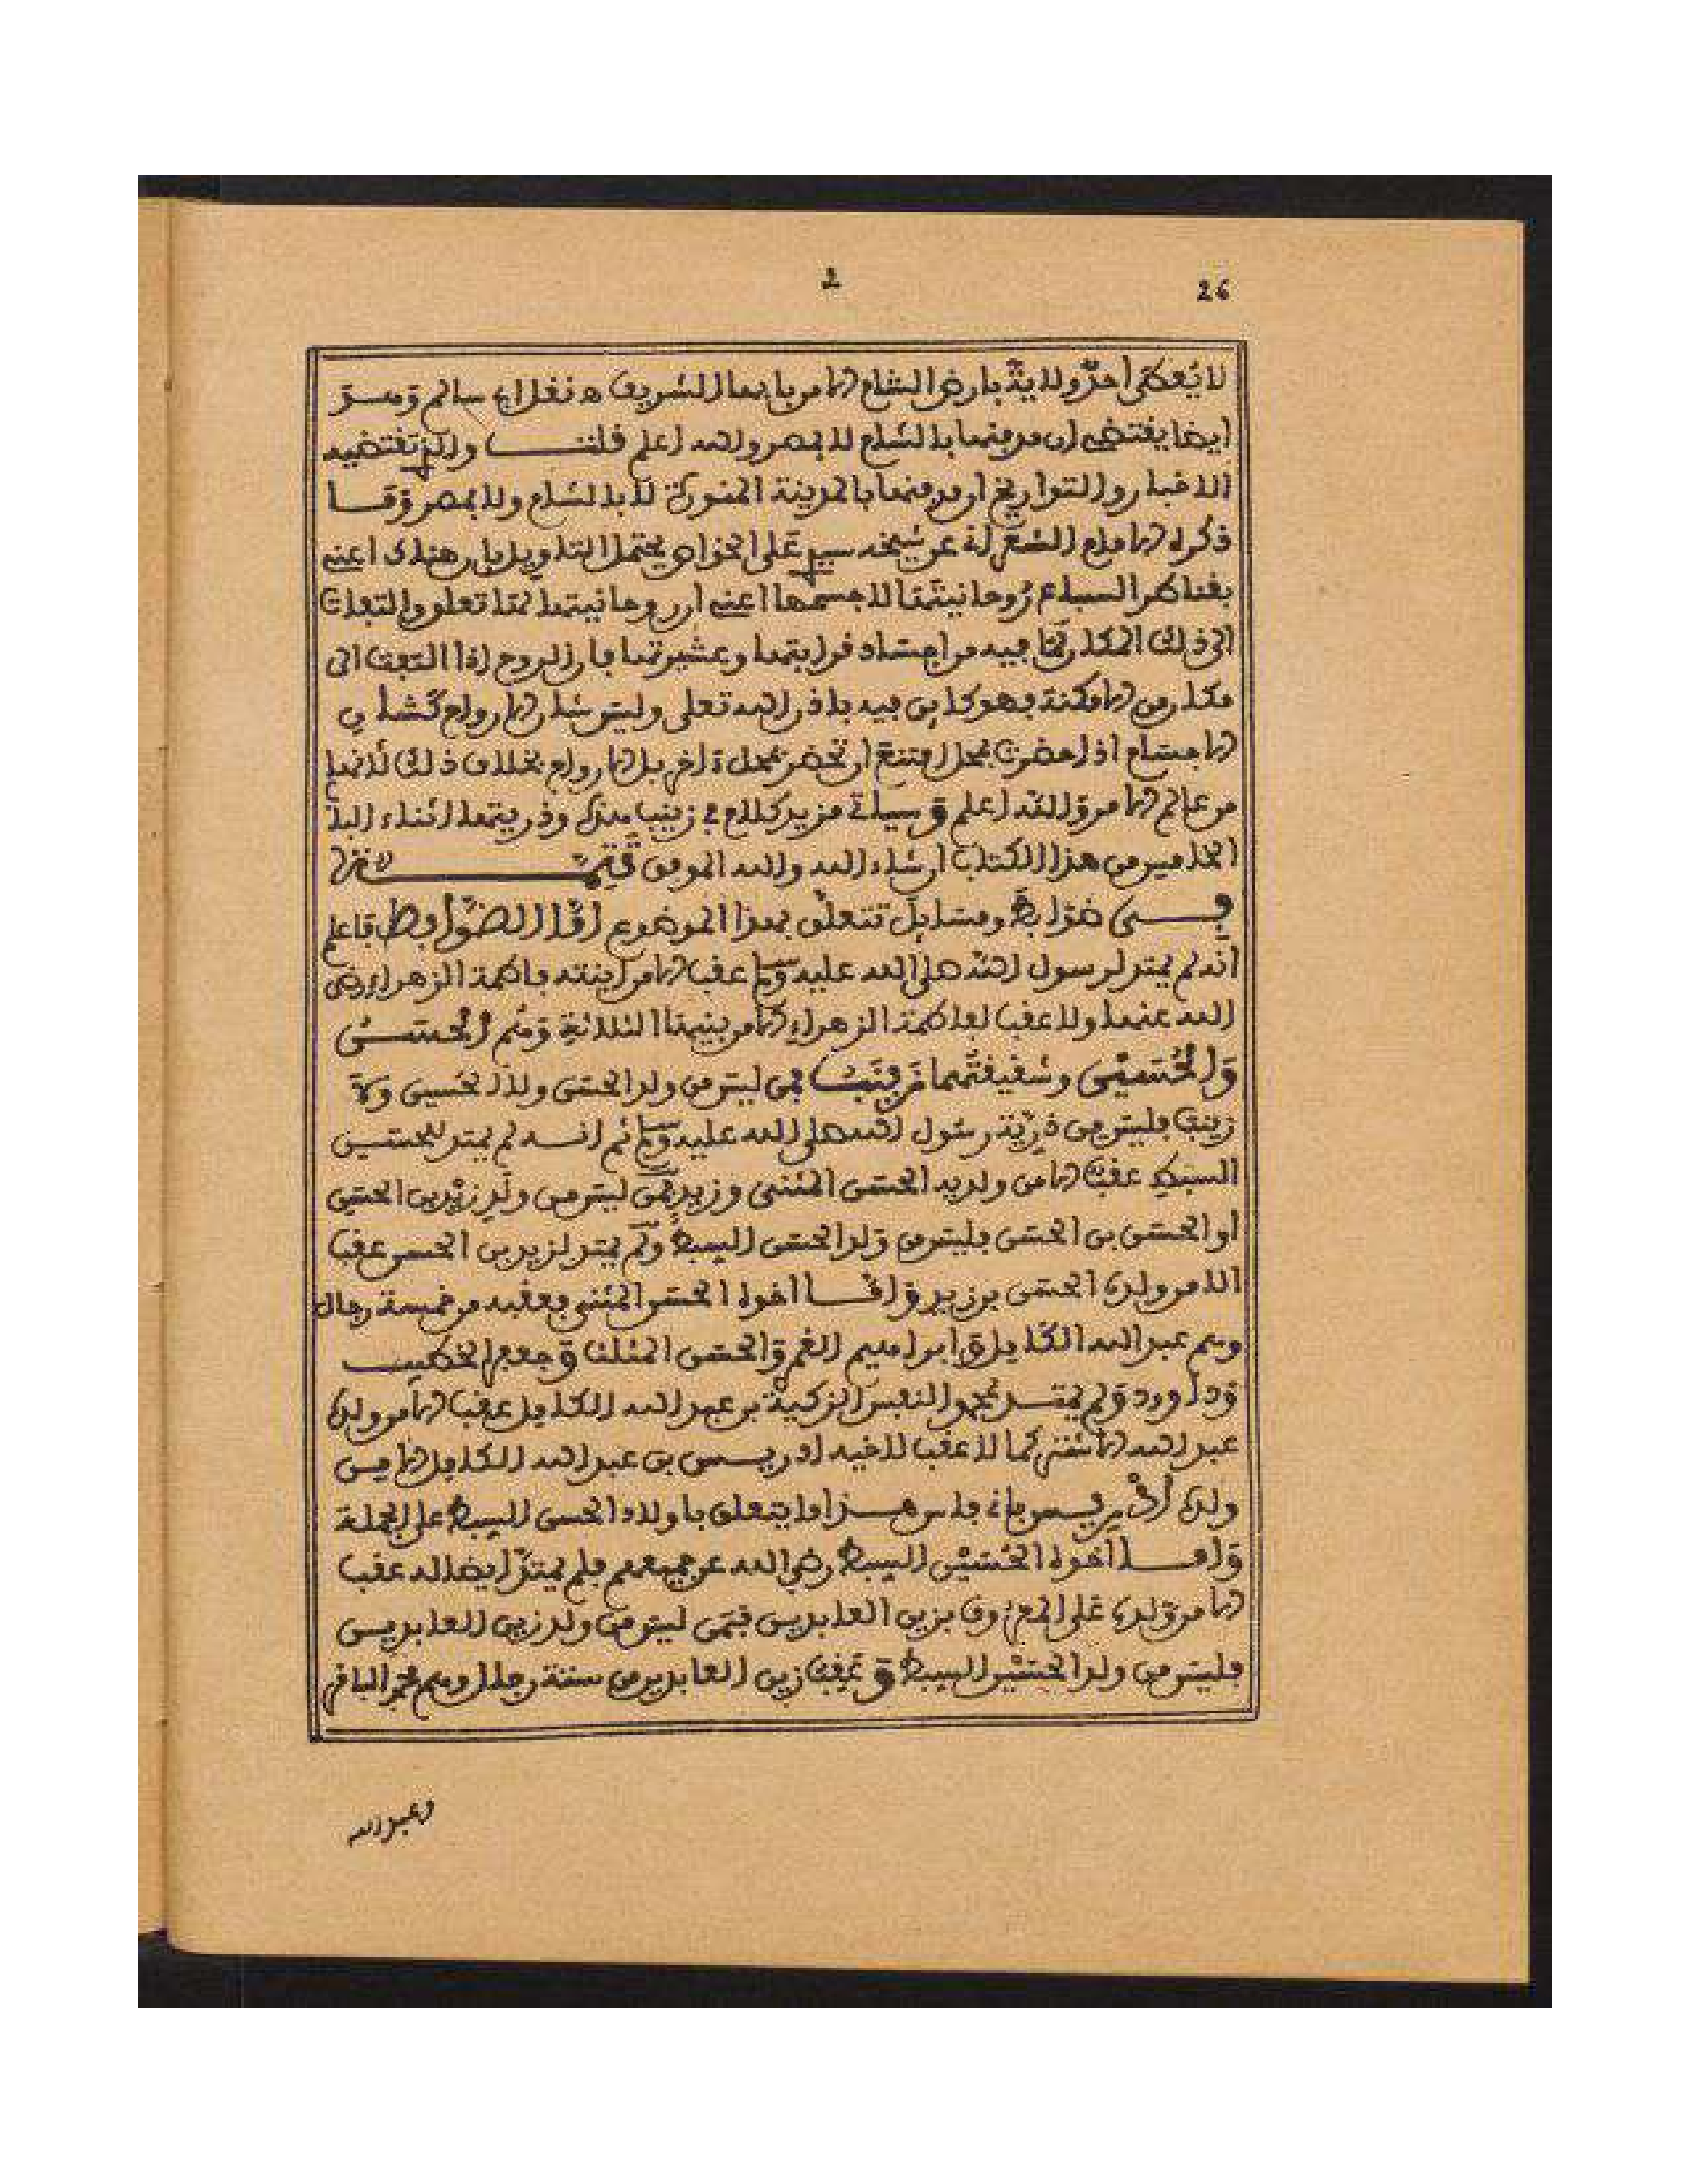 26
2
لا يعطى أحد ولاية بارض الشام الا من بابها الشريف ه نقله ابن سالم وهو
ايضا يفتضي ان مدفنها بالشام لا بمصر والله اعلم قلت والذي تقتضيه
الاخبار والتواريخ ان مدفنها بالمدينة المنورة لا بالشام ولا بمصر وما
ذكره الامام الشعراني عن شيخه سيدي علي الخواص يحتمل التاويل بان هناك اعني
بقناطر السباع روحانيتها لا جسمها اعني ان روحانيتها لها تعلق والتفات
الى ذلك المكان بما فيه من اجساد قرابتها وعشيرتها فان الروح اذا التفت الى
مكان من الامكنة فهو كاين فيه باذن الله تعلى وليس شان الارواح كشأن
الاجسام اذا حضرت بمحل امتنع ان تحضر بمحل ءاخر بل الارواح بخلاف ذلك لانها
من عالم الامر والله اعلم وسياتي مزيد كلام في زينب هذه وذريتها اثناء الباب
الخامس من هذا الكتاب ان شاء الله والله الموفق تتمة
في ضوابط ومسايل تتعلق بهذا الموضوع اما الضوابط فاعلم
أنه لم يمتد لرسول الله صلى الله عليه وسلم عقب الا من ابنته فاطمة الزهراء رضي
الله عنها ولا عقب لفاطمة الزهراء الا من بنيها الثلاثة وهم الحسن
والحسين وشقيقتهما زينب فمن ليس من ولد الحسن ولا الحسين ولا
زينب فليس من ذرية رسول الله صلى الله عليه وسلم ثم انه لم يمتد للحسن
السبط عقب الا من ولديه الحسن المثنى وزيد فمن ليس من ولد زيد بن الحسن
او الحسن بن الحسن فليس من ولد الحسن السبط ولم يمتد لزيد بن الحسن عقب
الا من ولده الحسن بن زيد واما اخوه الحسن المثنى فعقبه من خمسة رجال
وهم عبد الله الكامل وابراهيم الغمر والحسن المثلث وجعفر الخطيب
وداوود ولم يمتد لمحمد النفس الزكية بن عبد الله الكامل عقب الا من ولده
عبد الله الاشتر كما لا عقب لاخيه ادريس بن عبد الله الكامل الا من
ولده ادريس باني فاس هذا ما يتعلق باولاد الحسن السبط على الجملة
واما اخوه الحسين السبط رضي الله عن جميعهم فلم يمتد ايضا له عقب
الا من ولده علي المعروف بزين العابدين فمن ليس من ولد زين العابدين
فليس من ولد الحسين السبط وعقب زين العابدين من ستة رجال وهم محمد الباقر
وعبد الله